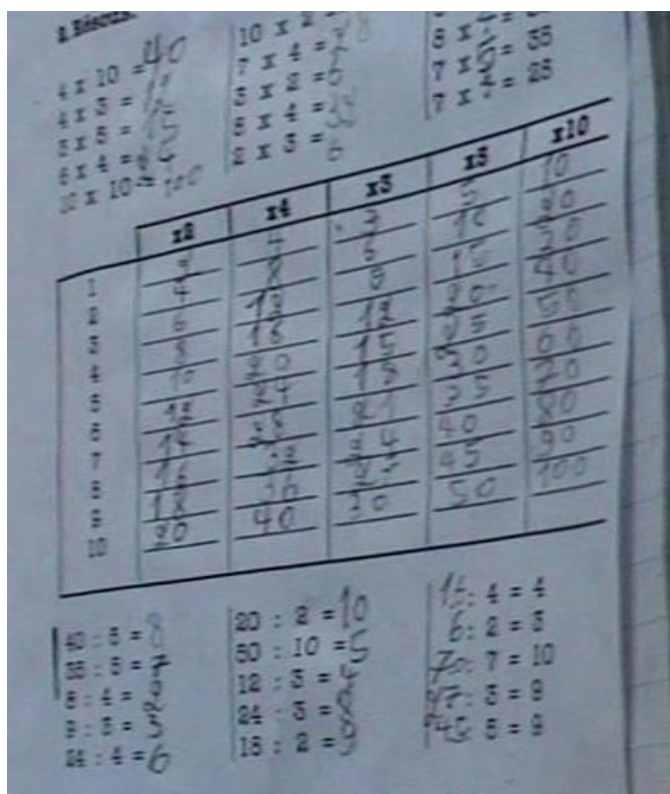 4 x 10 = 40
4 x 3 = 12
3 x 5 = 15
6 x 4 = 24
10 x 10 = 100
10 x 2
7 x 4 =
3 x 2 = 6
8 x 4 = 32
2 x 3 = 6
8 x
7 x 5 = 35
7 x 4 = 28
x2 x4 x3 x5 x10
1 2 4 3 5 10
2 4 8 6 10 20
3 6 12 9 15 30
4 8 16 12 20 40
5 10 20 15 25 50
6 12 24 18 30 60
7 14 28 21 35 70
8 16 32 24 40 80
9 18 36 27 45 90
10 20 40 30 50 100
40 : 5 = 8
35 : 5 = 7
8 : 4 = 2
9 : 3 = 3
24 : 4 = 6
20 : 2 = 10
50 : 10 = 5
12 : 3 = 4
24 : 3 = 8
18 : 2 = 9
16 : 4 = 4
6 : 2 = 3
70 : 7 = 10
27 : 3 = 9
45 : 5 = 9